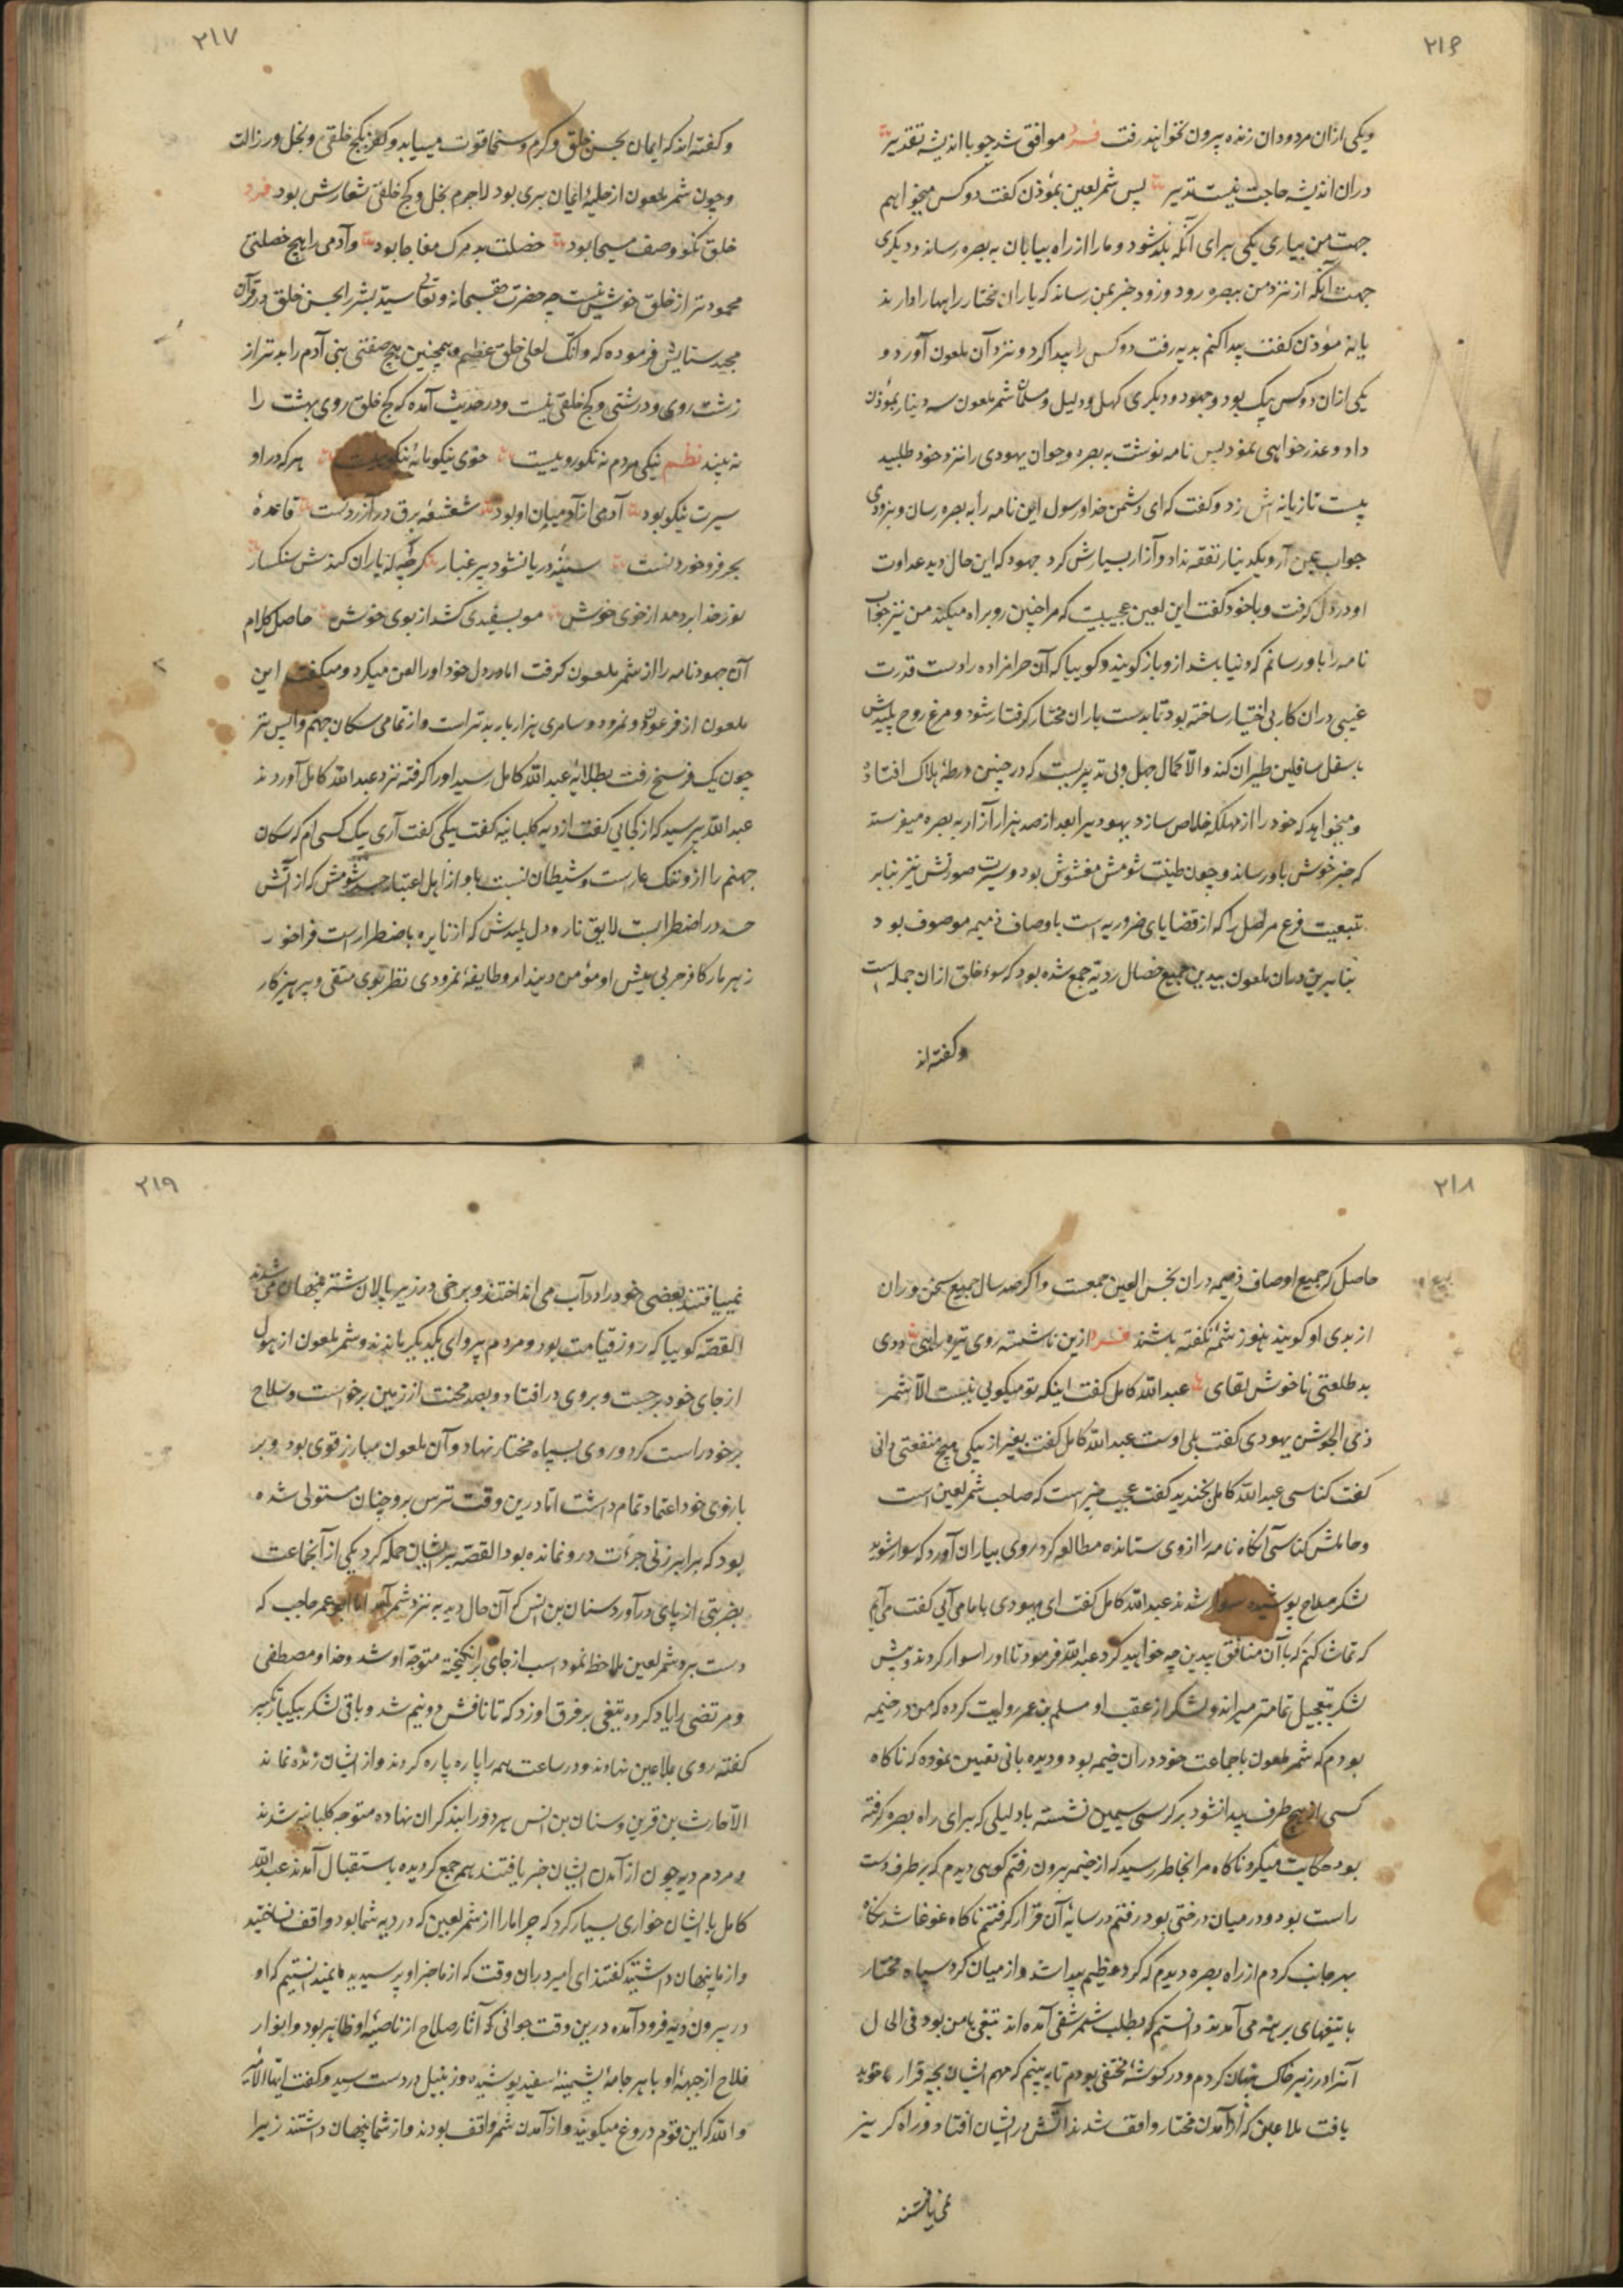 ٢١۶
ویکی ازان مردودان زنده بیرون نخواهند رفت فرد موافق شد چو با اندیشه تقدیر
دران اندیشه حاجت نیست تدبیر پس شمر لعین بمؤذن گفت دو کس میخواهم
جهت من بیاری یکی برای آنکه بلد شود و ما را از راه بیابان به بصره رساند و دیگری
جهت آنکه از نزد من ببصره رود و زود خبر بمن رساند که یاران مختار را بهار ادارند
یا نه مؤذن گفت پیدا کنم بدیه رفت دو کس را پیدا کرد و نزد آن ملعون آورد و
یکی ازان دو کس پیک بود و جهود و دیگری کهل و دلیل و مسلمان شمر ملعون سه دینار بمؤذن
داد و عذرخواهی نمود پس نامه نوشت به بصره و جوان یهودی را نزد خود طلبید
بیست تازیانه اش زد و گفت که ای دشمن خدا و رسول این نامه را به بصره رسان و بزودی
جواب بمن آر و یکدینار نفقه نداد و آزار بسیارش کرد جهود که این حال دید عداوت
او در دل گرفت و با خود گفت این لعین عجیبیست که مرا چنین روبراه میکند من نیز جواب
نامه را باو رسانم که دنیا باشد ازو باز گویند و گوییا که آن حرامزاده را دست قدرت
غیبی دران کار بی اختیار ساخته بود تا بدست یاران مختار گرفتار شود و مرغ روح پلیدش
باسفل سافلین طیران کند والا کمال جهل و بی تدبیریست که در چنین ورطهٔ هلاک افتاده
و میخواهد که خود را از مهلکه خلاص سازد یهودیرا بعد از صد هزار آزار به بصره میفرستد
که خبر خوش باو رساند و چون طینت شومش مغشوش بود و سیرت صورتش نیز بنابر
تبعیت فرع مر اصل را که از قضایای ضروریه است باوصاف ذمیمه موصوف بود
بنابرین دران ملعون بیدین جمیع خصال ردیّه جمع شده بود که سوء خلق ازان جمله است
و گفته اند
٢١٧
و گفته اند که ایمان بحسن خلق و کرم و سخا قوت مییابد و کفر بکج خلقی و بخل و رزالت
و چون شمر ملعون از حلیهٔ ایمان بری بود لاجرم بخل و کج خلقی شعارش بود فرد
خلق نکو وصف مسیحا بود خصلت بد مرک مفاجا بود و آدمی را هیچ خصلتی
محمودتر از خلق خوش نیست چه حضرت حق سبحانه و تعالی سید بشر را بحسن خلق در قرآن
مجید ستایش فرموده که وانک لعلی خلق عظیم و همچنین هیچ صفتی بنی آدم را بدتر از
زشت روی و درشتی و کج خلقی نیست و در حدیث آمده که کج خلق روی بهشت را
نه بیند نظم نیکی مردم نه نکوروییست خوی نیکو مایهٔ نیکوییست هر که در او
سیرت نیکو بود آدمی از آدمیان او بود شعشعهٔ برق درازر دست قاعدهٔ
بحر فرو خوردنست سینهٔ دریا نشود پر غبار گرچه که یاران کندش سنکسار
نور خدا بر دمد از خوی خوش مو بسفیدی کشد از بوی خوش حاصل کلام
آن جهود نامه را از شمر ملعون گرفت اما در دل خود او را لعن میکرد و میکفت این
ملعون از فرعون و نمرود و سامری هزار بار بدتر است و از تمامی سکان جهنم واپس تر
چون یک فرسخ رفت بطلایهٔ عبدالله کامل رسید او را گرفته نزد عبدالله کامل آوردند
عبدالله پرسید که از کجایی گفت از دیه کلبانیه گفت پیکی گفت آری پیک کسی ام که سکان
جهنم را ازو ننک عار است و شیطان نسبت باو از اهل اعتبار جسد شومش که از آتش
حسد در اضطرابست لایق نار و دل پلیدش که از نایره باضطرار است فراخور
زهر مار کافر حربی پیش او مؤمن دیندار و طایفهٔ نمرودی نظر بوی متقی و پرهیزکار
٢١٨
حاصل که جمیع اوصاف ذمیمه دران نجس العین جمعست و اگر صد سال جمیع سخن وران
از بدی او گویند هنوز شمهٔ نگفته باشند فرد ازین ناشسته روی تیره رایی ددی
بد طلعتی ناخوش لقای عبدالله کامل گفت اینکه تو میگویی نیست الا شمر
ذی الجوشن یهودی گفت بلی اوست عبدالله کامل گفت بغیر از پیکی هیچ منفعتی دانی
گفت کناسی عبدالله کامل بخندید گفت عجیب خبر است که صاحب شمر لعین است
و حاملش کناسی آنگاه نامه را از وی ستانده مطالعه کرد و روی بیاران آورد که سوار شوید
لشکر سلاح پوشیده سوار شدند عبدالله کامل گفت ای یهودی با ما می آیی گفت می آیم
که تماشا کنم که با آن منافق بیدین چه خواهید کرد عبدالله فرمود تا او را سوار کردند و پیش
لشکر بتعجیل تمامتر میراند و لشکر از عقب او مسلم بن عمر روایت کرده که من در خیمه
بودم که شمر ملعون با جماعت خود دران خیمه بود و دیده بانی تعیین نموده که ناگاه
کسی از هیچ طرف پیدا نشود بر کرسی سیمین نشسته با دلیلی که برای راه بصره گرفته
بود حکایت میکرد ناگاه مرا بخاطر رسید که از خیمه بیرون رفتم کوهی دیدم که بر طرف دست
راست بود و در میان درختی بود رفتم در سایهٔ آن قرار گرفتم ناگاه غوغا شد نگاه
بهر جانب کردم از راه بصره دیدم که کرد عظیم پیدا شد و از میان کرد سپاه مختار
با تیغهای برهنه می آمدند دانستم که بطلب شمر شقی آمده اند تیغی با من بود فی الحال
آنرا در زیر خاک پنهان کردم و در گوشهٔ مختفی بودم تا ببینم که مهم ایشان بچه قرار خواهد
یافت ملاعین که از آمدن مختار واقف شدند آتش در ایشان افتاد و راه گریز
نمی یافتند
٢١٩
نمییافتند بعضی خود را در آب می انداختند و برخی در زیر پالان شتر پنهان می شدند
القصه گوییا که روز قیامت بود و مردم پروای یکدیگر نماندند و شمر ملعون از هول
از جای خود برجست و بروی در افتاد و بصد محنت از زمین برخواست و سلاح
بر خود راست کرد و روی بسپاه مختار نهاد و آن ملعون مبارز قوی بود و بر
بازوی خود اعتماد تمام داشت اما درین وقت ترس برو چنان مستولی شده
بود که برابر زنی جرأت درو نمانده بود القصه بر ایشان حمله کرد یکی از آنجماعت
بضربتی از پای در آورد سنان بن انس که آن حال دید به نزد شمر آمد اما ابو عمر حاجب که
دست برد شمر لعین ملاحظه نمود اسب از جای بر انگیخته متوجه او شد و خدا و مصطفی
و مرتضی را یاد کرده تیغی بر فرق او زد که تا نافش دو نیم شد و باقی لشکر بیکبار تکبیر
گفته روی بملاعین نهادند و در ساعت همه را پاره پاره کردند و از ایشان زنده نماند
الا حارث بن قرین و سنان بن انس هر دو را بند گران نهاده متوجه کلبانیه شدند
و مردم دیه چون از آمدن ایشان خبر یافتند هم جمع گردیده باستقبال آمدند عبدالله
کامل با ایشان خواری بسیار کرد که چرا ما را از شمر لعین که در دیه شما بود واقف نساختید
و از ما پنهان داشتید گفتند ای امیر دران وقت که از ما خبر او پرسیدید ما نمیدانستیم که او
در بیرون دیه فرود آمده درین وقت جوانی که آثار صلاح از ناصیهٔ او ظاهر بود و انوار
فلاح از جبههٔ او باهر جامهٔ پشمینهٔ سفید پوشیده و زنبیل در دست رسید و گفت ایها الامیر
والله که این قوم دروغ میگویند و از آمدن شمر واقف بودند و از شما پنهان داشتند زیرا